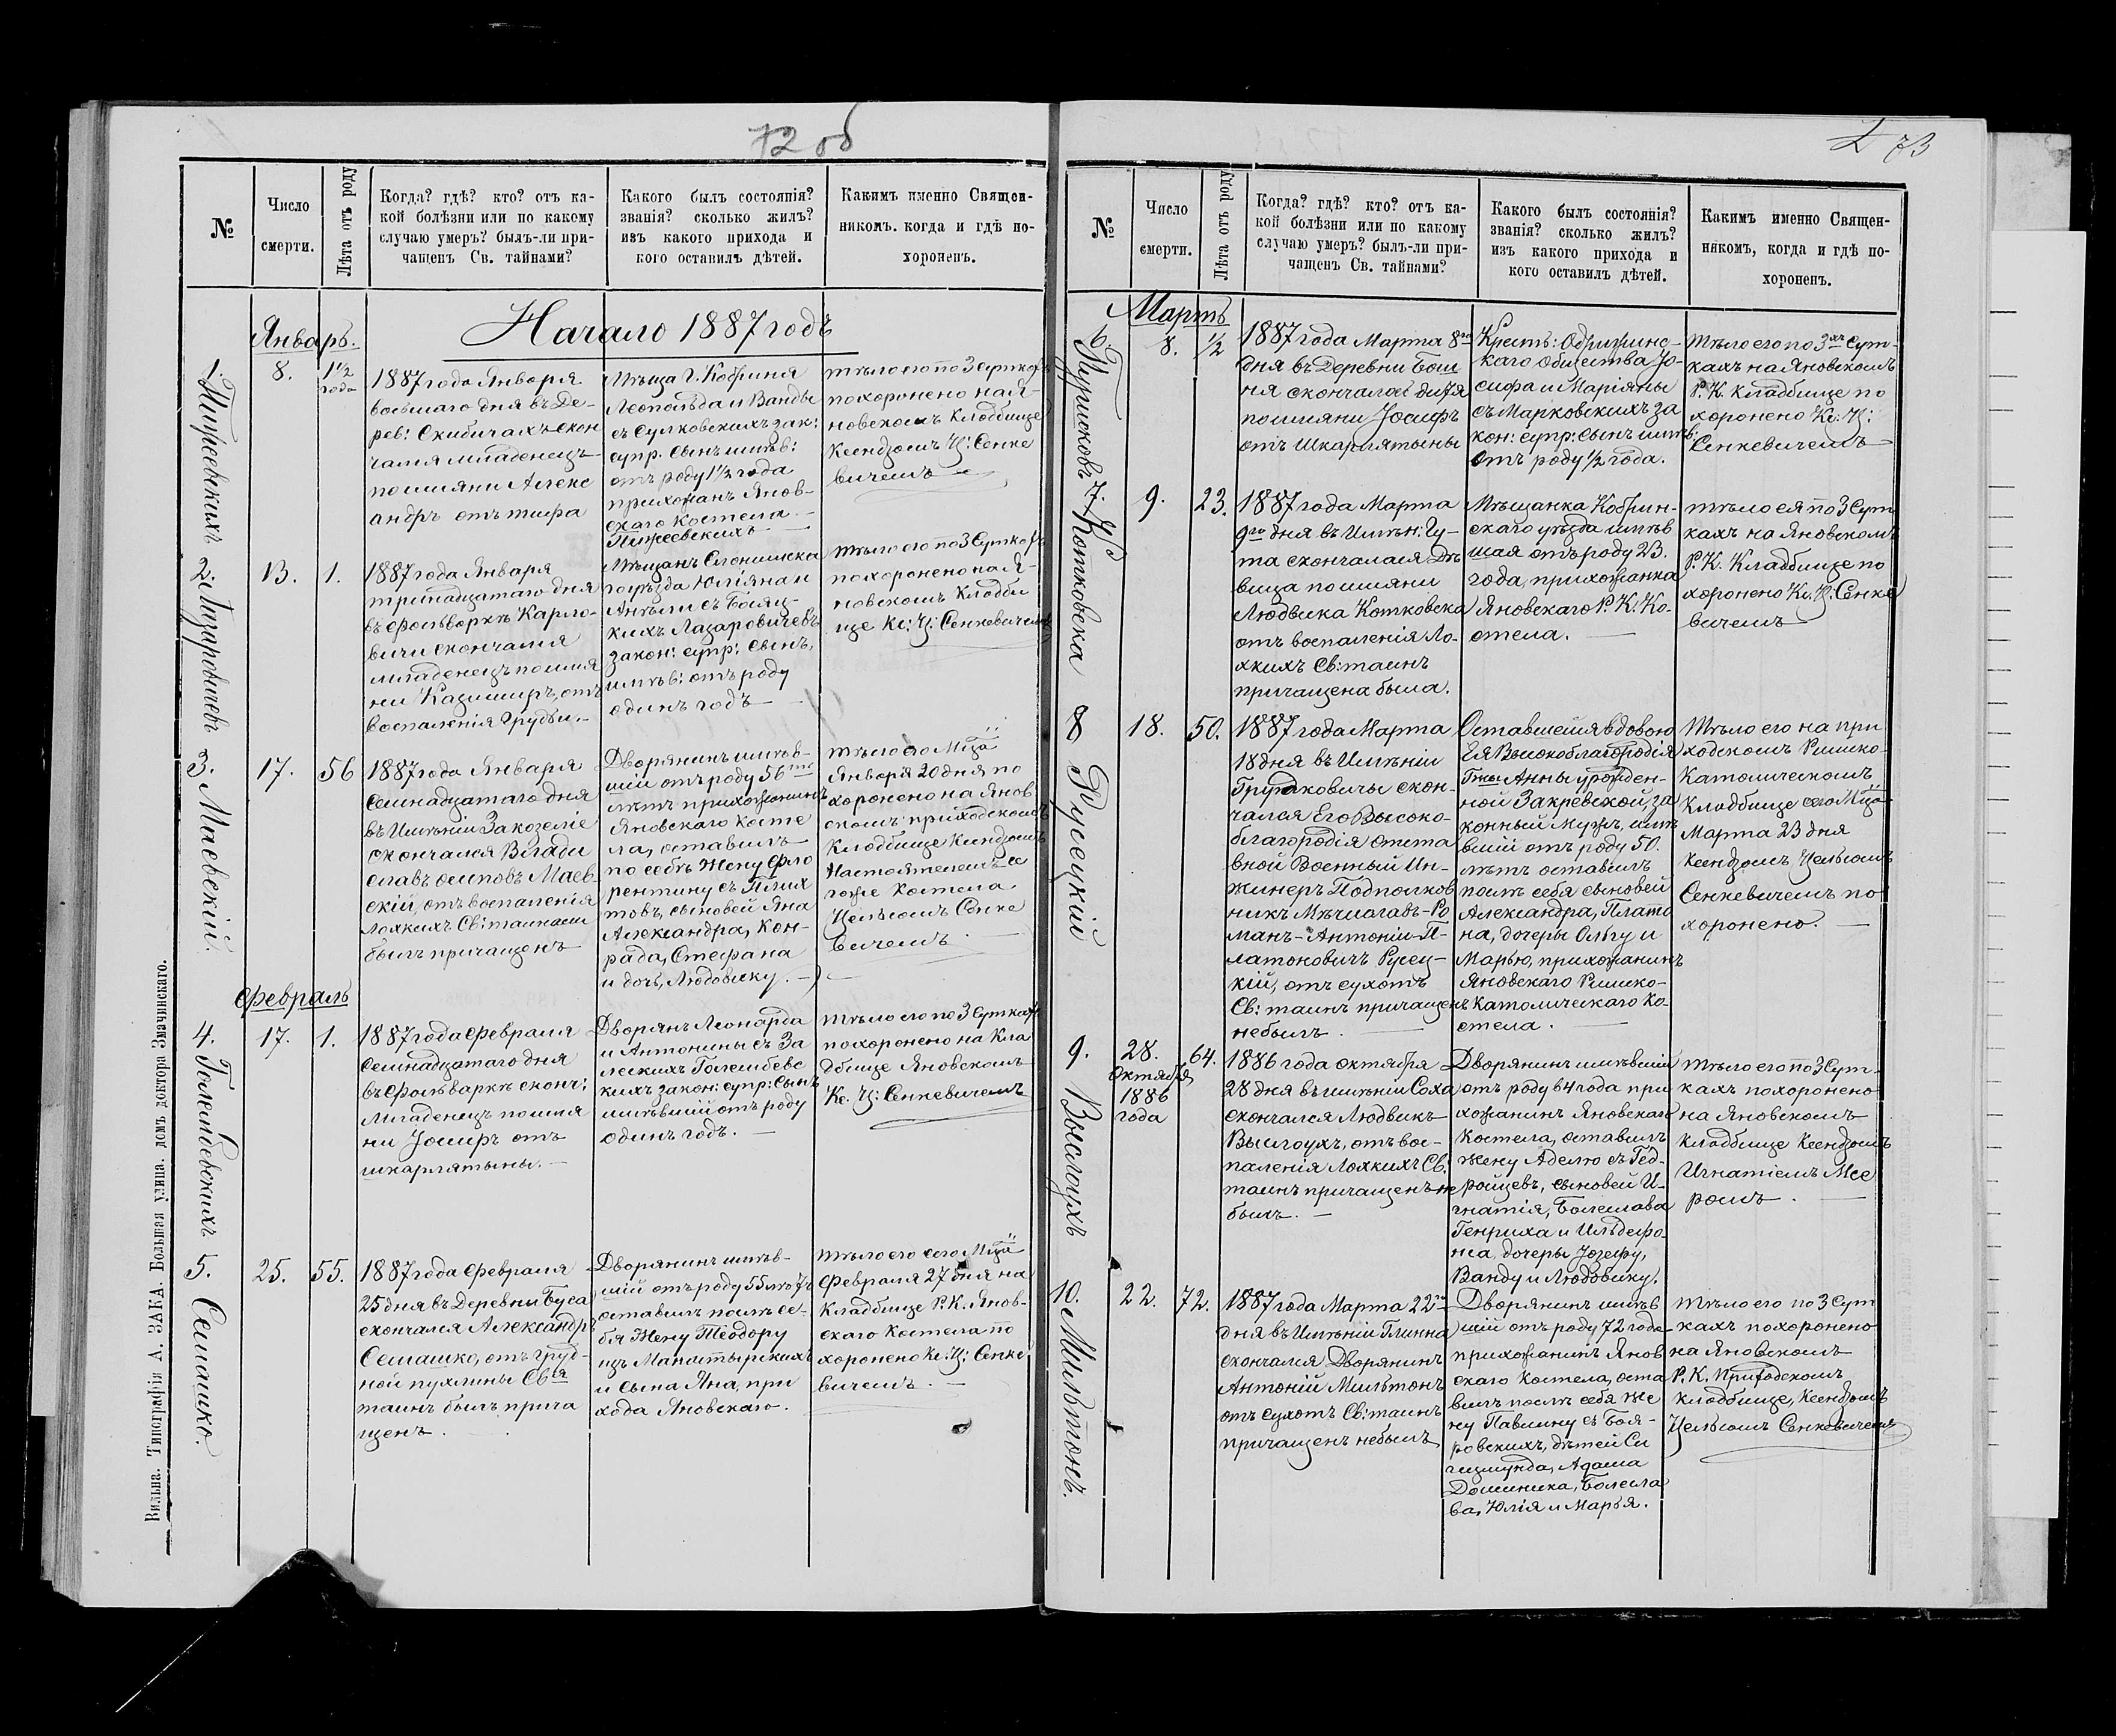 72 об
№
Число
смерти.
Лѣта отъ роду
Когда? гдѣ? кто? отъ ка-
кой болѣзни или по какому
случаю умеръ? былъ-ли при-
чащенъ Св. тайнами?
Какого былъ состоянія?
званія? сколько жилъ?
изъ какого прихода и
кого оставилъ дѣтей.
Какимъ именно Священ-
никомъ. когда и гдѣ по-
хороненъ.
Начало 1887 годъ
Январь.
1.
8.
1 1/2
года
1887 года Января
восьмаго дня въ Де-
рев: Скибичахъ скон
чался младенецъ
по имяни Алекс
андръ отъ тифа
Мѣща г. Кобрина
Леопольда и Ванды
съ Сулковскихъ зак:
супр. сынъ имѣв:
отъ роду 1 1/2 года
прихожанъ Янов-
скаго костела
тѣло его по 3 суткахъ
похоронено на Я-
новскомъ Кладбище
Ксендзомъ Ц: Сенке
вичемъ
2. Лазаровичевъ
13.
1.
1887 года Января
тринадцатаго дня
въ фольваркѣ Карло-
вичи скончался
младенецъ по имя
ни Казимиръ, отъ
воспаленія грудьи.-
Мѣщанъ Слонимска
го уѣзда Юліяна и
Анѣли съ Бояц-
кихъ Лазаровичевъ
закон: супр: сынъ,
имѣв: отъ роду
одинъ годъ
тѣло его по 3 суткахъ
похоронено на Я-
новскомъ Кладби
ще Кс: Ц: Сенкевичемъ
3. Маевскій.
17.
56
1887 года Января
семнадцатаго дня
въ Имѣніи Закозеліе
скончался Влади
славъ осиповъ Маев
скій, отъ воспаленія
лохкихъ Св: таинами
былъ причащенъ
Дворянинъ имѣв-
шій отъ роду 56ть
лѣтъ прихожанинъ
Яновскаго косте
ла, оставилъ
по себѣ жену Фло
рентину съ
товъ, сыновей Яна
Александра, Кон-
рада, Стефана
и дочь, Людовику. -
тѣло его Мца
Января 20 дня по
хоронено на Янов
скомъ приходскомъ
Кладбище Ксендзомъ
Настоятелемъ се
гоже Костела
Цельсомъ Сенке
вичемъ
Февраль
4. Голембевскихъ
17.
1.
1887 года Февраля
семнадцатаго дня
въ Фольваркѣ сконч:
Младенецъ по имя
ни Іосифъ отъ
шкарлятыны. -
Дворянъ Леонарда
и Антонины съ За
лескихъ Голембевс
кихъ закон: супр: сынъ
имѣвшій отъ роду
одинъ годъ. -
Тѣло его по 3 суткахъ
похоронено на Кла
дбище Яновскомъ
Кс. Ц: Сенкевичемъ
5. Семашко.
25.
55.
1887 года Февраля
25 дня въ Деревни Буса
скончался Александръ
Семашко, отъ груд-
ной пухлины Св
таинъ былъ прича
щенъ.
Дворянинъ имѣв-
шій отъ роду 55 лѣтъ
оставилъ послѣ се-
бя Жену Теодору
изъ Манастырскихъ
и сына Яна, при
хода Яновскаго.
тѣло его сего Мца
Февраля 27 дня на
Кладбище Р. К. Янов-
скаго Костела по
хоронено Кс: Ц: Сенке
вичемъ. -
Вильна. Типографія А. ЗАКА. Большая улица. домъ доктора Змачинскаго.
73
№
Число
смерти.
Лѣта отъ роду
Когда? гдѣ? кто? отъ ка-
кой болѣзни или по какому
случаю умеръ? былъ-ли при-
чащенъ Св. тайнами?
Какого былъ состоянія?
званія? сколько жилъ?
изъ какого прихода и
кого оставилъ дѣтей.
Какимъ именно Священ-
никомъ, когда и гдѣ по-
хороненъ.
Мартъ
6.
8.
1/2
1887 года Марта 8го
дня въ Деревни
скончалась дитя
по имяни Іосифъ
отъ Шкарлятыны
Крест:
каго Общества Іо-
сифа и Маріяны
съ Марковскихъ за
кон: супр: сынъ имѣв:
отъ роду 1/2 года.
Тѣло его по 3хъ сут-
кахъ на Яновскомъ
Р. К. Кладбище по
хоронено Кс. Ц:
Сенкевичемъ
7. Котковска
9.
23.
1887 года Марта
9го дня въ Имѣн: Гу-
та скончалася Дѣ
вица по имяни
Людвика Котковска
отъ воспаленія Ло-
хкихъ Св: таинъ
причащена была.
Мѣщанка Кобрин-
скаго уѣзда имѣв
шая отъ роду 23.
года, прихожанка
Яновскаго Р. К. Ко-
стела. -
тѣло ея по 3 сут
кахъ на Яновскомъ
Р. К. Кладбище по
хоронено Кс. Ц: Сенке
вичемъ
8 Русецкій
18.
50.
1887 года Марта
18 дня въ Имѣніи
Грудковичы скон-
чался Его Высоко-
благородія отста
вной Военный Ин-
жинеръ Подполков
никъ Мѣчиславъ-Ро
манъ-Антоній-П-
латоновичъ Русец-
кій, отъ сухотъ
Св: таинъ причащенъ
небылъ. -
Оставшейся вдовою
Ея Высокоблагородія
Гжы Анны урожден-
ной Закревской, за
конный Мужъ, имѣ
вшій отъ роду 50.
лѣтъ оставилъ
послѣ себя сыновей
Александра, Плато
на, дочеры Ольгу и
Марью, прихожанинъ
Яновскаго Римско-
Католическаго Ко-
стела. -
Тѣло его на при
ходскомъ Римско-
Католическомъ
Кладбище сего Мца
Марта 23 дня
Ксендзомъ Цельсомъ
Сенкевичемъ по
хоронено. -
9. Выслоухъ
28.
Октября
1886
года
64.
1886 года Октября
28 дня въ имѣніи Соха
скончался Людвикъ
Выслоухъ, отъ вос-
паленія Лохкихъ Св.
таинъ причащенъ не
былъ. -
Дворянинъ имѣвшій
отъ роду 64 года при
хожанинъ Яновскаго
Костела, оставилъ
жену Аделю съ Гед-
ройцевъ, сыновей И-
гнатія, Болеслава
Генриха и Ильдефо
нса, дочеры Юзефу,
Ванду и Людовику.
тѣло его по 3 сут-
кахъ похоронено
на Яновскомъ
кладбище Ксендзомъ
Игнатіемъ Мее
ромъ. -
10. Мильтонъ.
22.
72.
1887 года Марта 22го
дня въ Имѣніи Глинна
скончался Дворянинъ
Антоній Мильтонъ
отъ сухотъ Св: таинъ
причащенъ небылъ
Дворянинъ имѣв
шій отъ роду 72 года
прихожанинъ Янов
скаго Костела, оста
вилъ послѣ себя же
ну Павлину съ Боя-
ровскихъ, дѣтей Си
гизмунда, Адама
Доминика, Болесла
ва, Юлія и Марья.
тѣло его по 3 сут
кахъ похоронено
на Яновскомъ
Р. К. Приходскомъ
кладбище, Ксендзомъ
Цельсомъ Сенкевичемъ